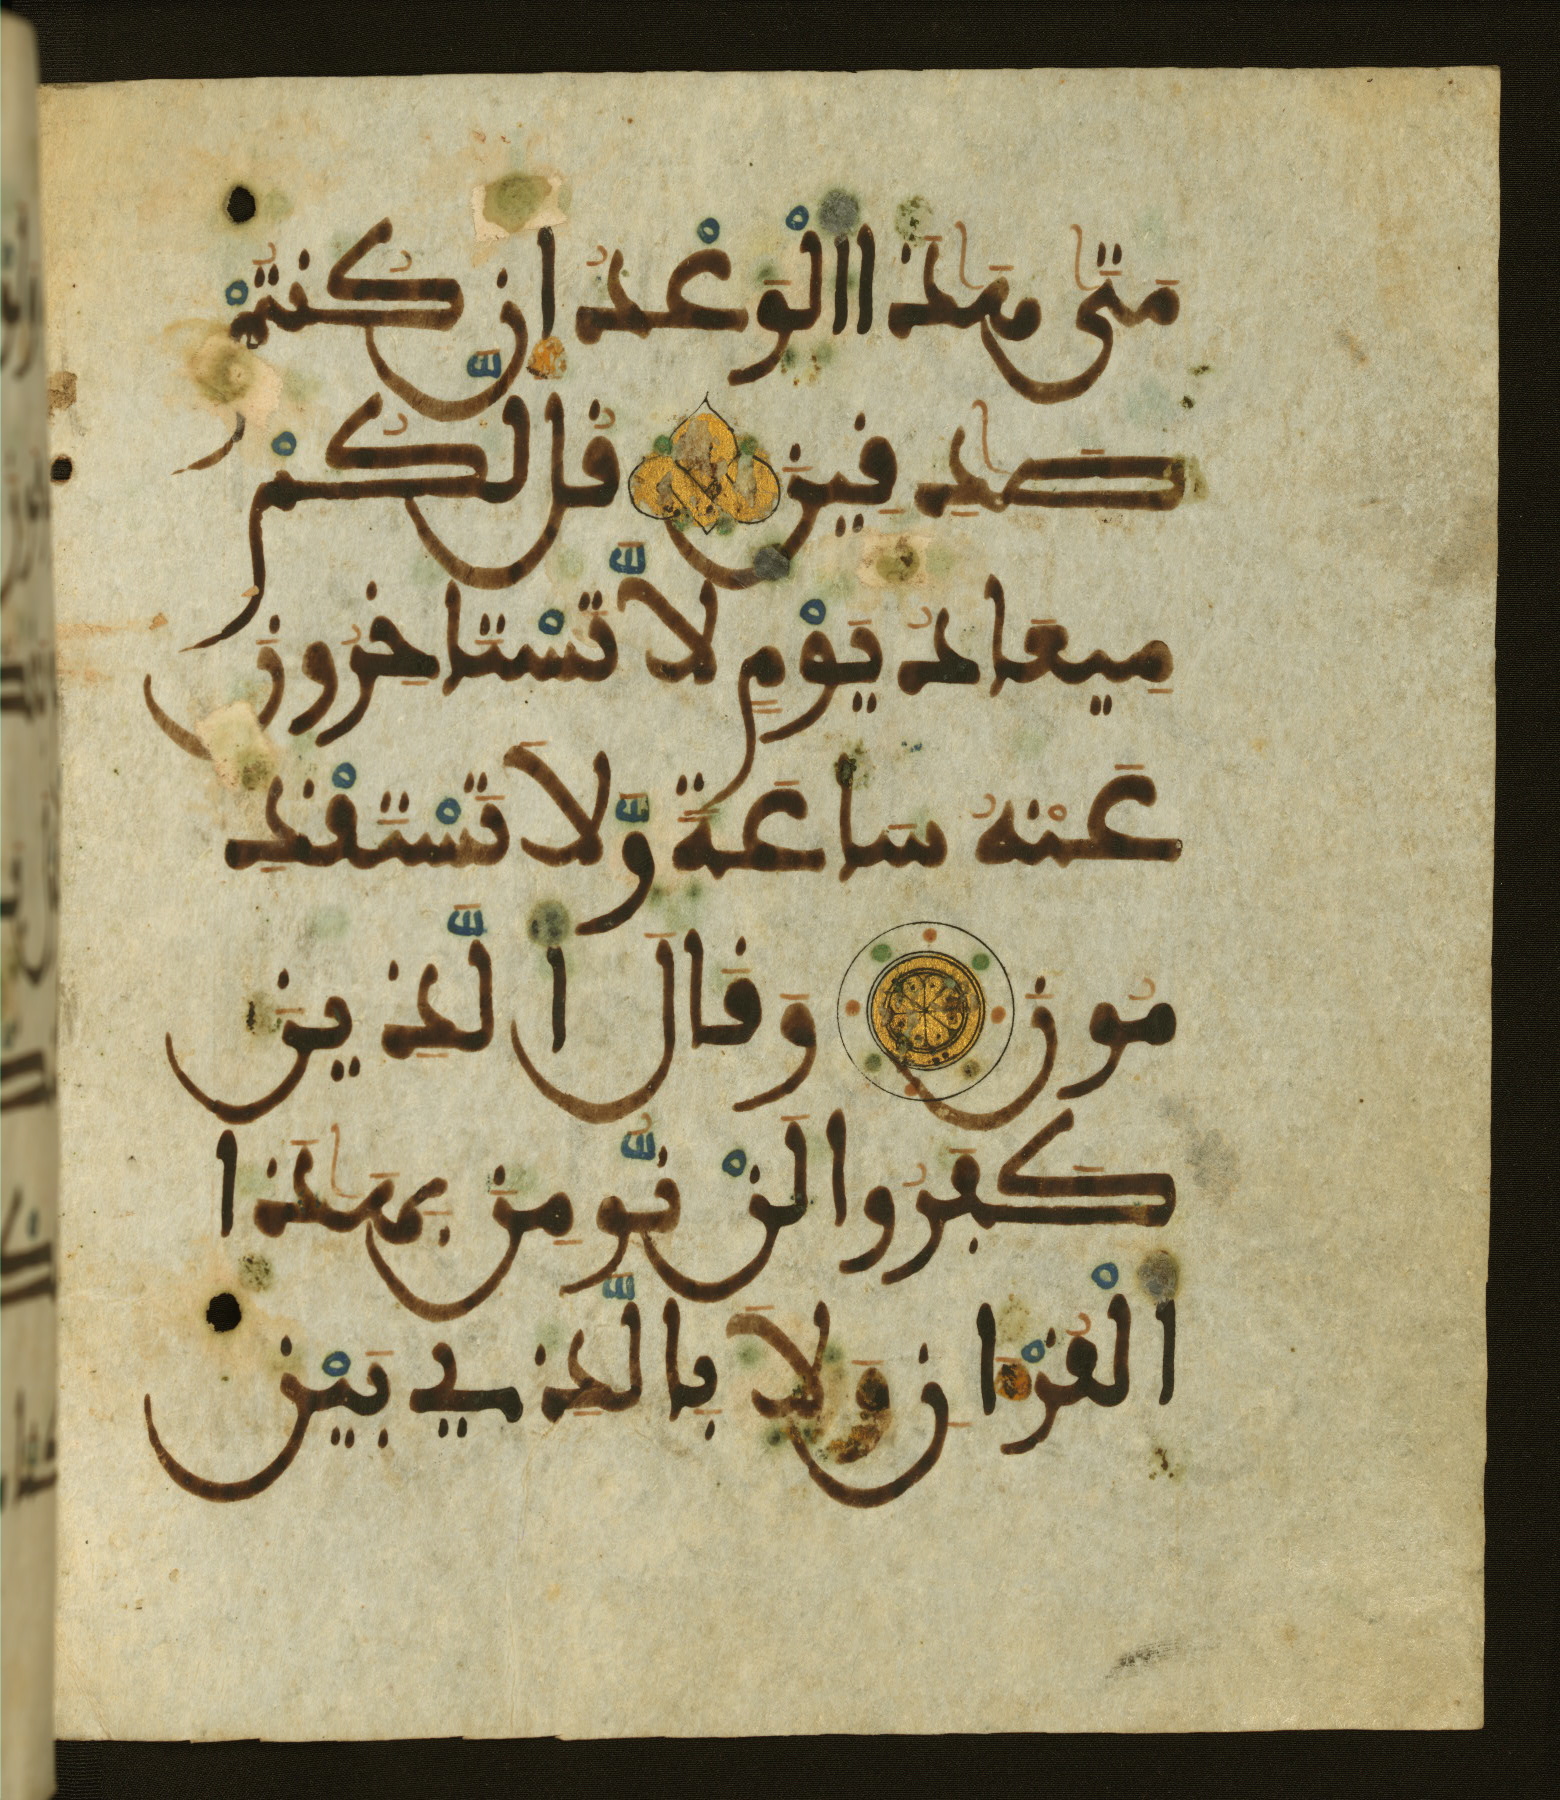 مَتَىٰ هَٰذَا الْوَعْدُ إِن كُنتُمْ
صَٰدِفِينَ فُل لَّكُم
مِّيعَادُ يَوْمٍ لَّا تَسْتَاخِرُونَ
عَنْهُ سَاعَةً وَّلَا تَسْتَفْدِ
مُونَ وَفَالَ الَّذِينَ
كَفَرُوا لَن نُّومِنَ بِهَٰذَا
الْفُرْءَانِ وَلَا بِالَّذِي بَيْنَ